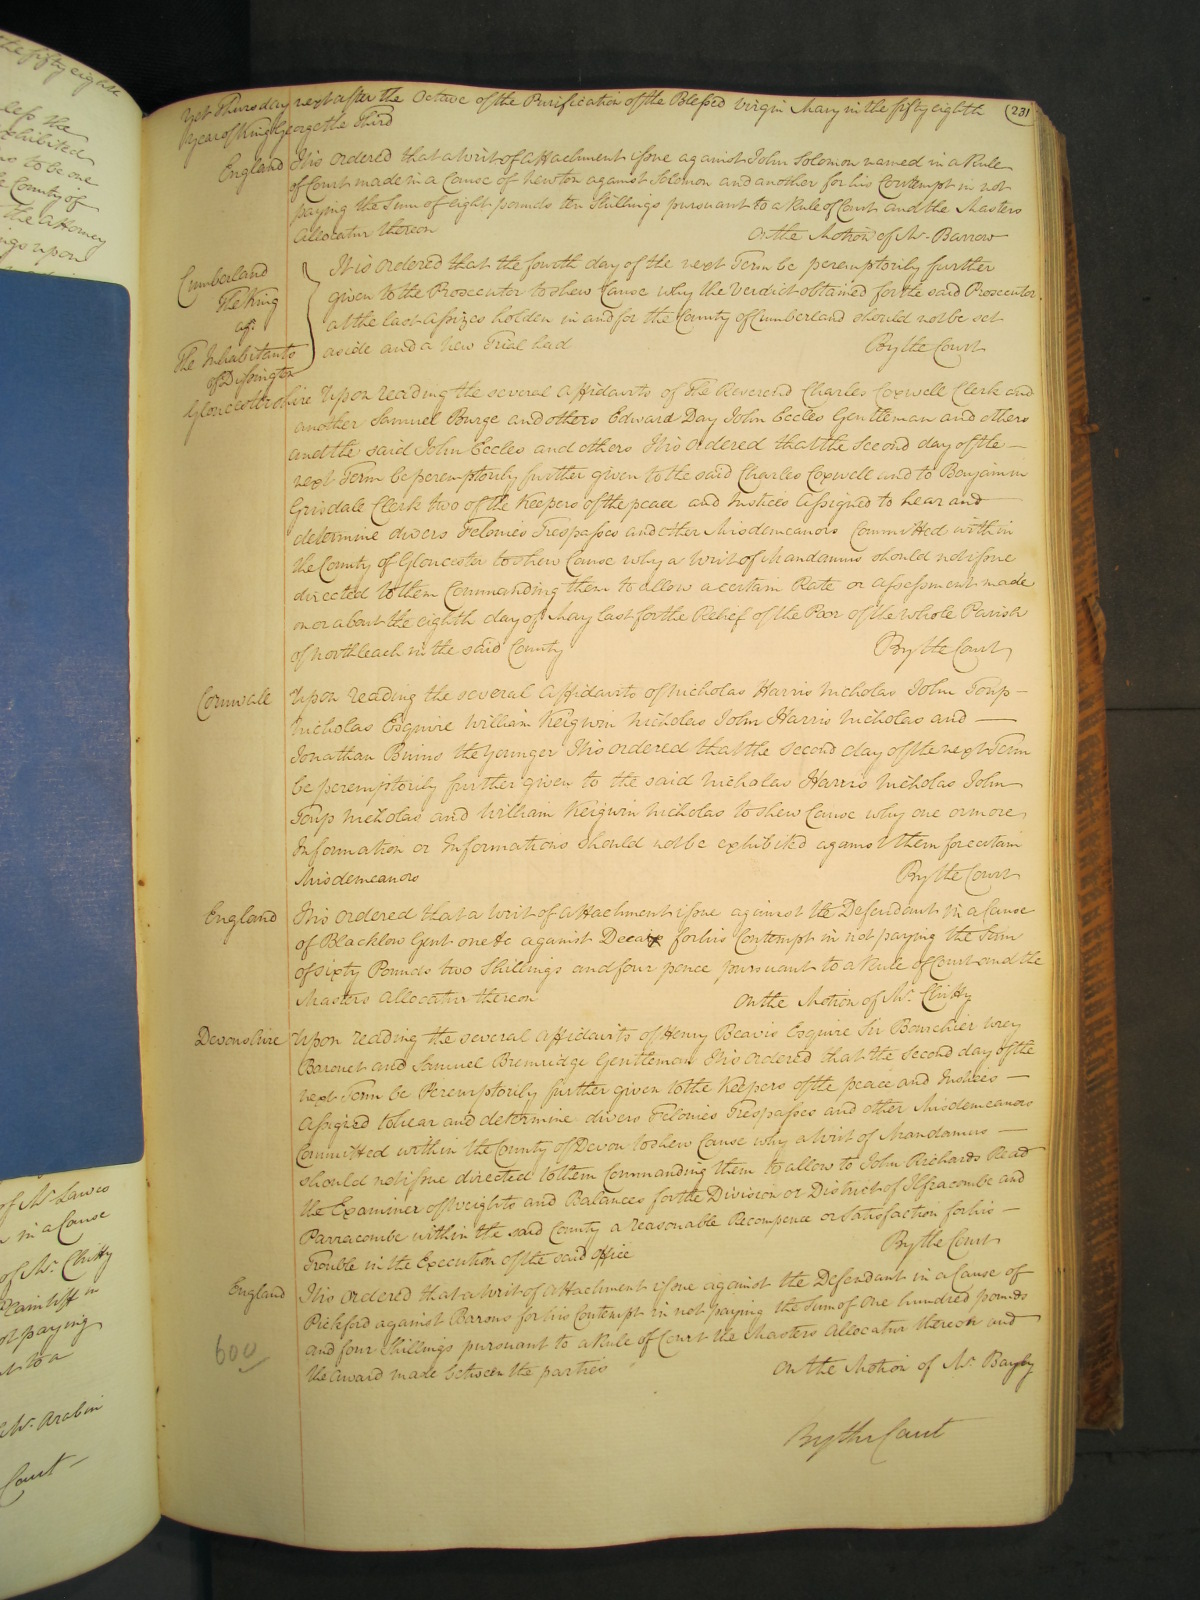 Yet Thursday next after the Octave of the Purification of the Blessed Virgin Mary in the fifty eighth
231
Year of King George the Third
England It is ordered that a writ of Attachment issue against John Solomon named in a Rule
of Court made in a Cause of Newton against Solomon and another for his Contempt in not
paying the Sum of eight pounds ten Shillings pursuant to a Rule of Court and the Masters
Allocatur thereon On the Motion of Mr. Barrow
Cumberland
The King
agt.
The Inhabitants
of Dissington
It is ordered that the fourth day of the next Term be peremptorily further
given to the Prosecutor to shew Cause why the Verdict obtained for the said Prosecutor
at the last Assizes holden in and for the County of Cumberland should not be set
aside and a New Trial had By the Court
Gloucestershire Upon reading the several Affidavits of the Reverend Charles Coxwell Clerk and
another Samuel Burge and others Edward Day John Eccles Gentleman and others
and the said John Eccles and others It is ordered that the second day of the
next Term be peremptorily further given to the said Charles Coxwell and to Benjamin
Grisdale Clerk two of the Keepers of the peace and Justices assigned to hear and
determine divers Felonies Trespasses and other Misdemeanors Committed within
the County of Gloucester to shew Cause why a Writ of Mandamus should not issue
directed to them Commanding them to allow a certain Rate or assessment made
on or about the eighth day of May last for the Relief of the Poor of the whole Parish
of Northleach in the said County By the Court
Cornwall Upon reading the several Affidavits of Nicholas Harris Nicholas John Toup
Nicholas Esquire William Keigwin Nicholas John Harris Nicholas and
Jonathan Binns the younger It is ordered that the second day of the next Term
be peremptorily further given to the said Nicholas Harris Nicholas John
Toup Nicholas and William Keigwin Nicholas to shew Cause why one or more
Information or Informations should not be exhibited against them for certain
Misdemeanors By the Court
England It is ordered that a Writ of Attachment issue against the Defendant in a Cause
of Blacklow Gent one &c against for his Contempt in not paying the Sum
of sixty Pounds two Shillings and four pence pursuant to a Rule of Court and the
Masters Allocatur thereon On the Motion of Mr. Chitty
Devonshire Upon reading the several Affidavits of Henry Beavis Esquire Sir Bourchier Wrey
Baronet and Samuel Bremridge Gentleman It is ordered that the second day of the
next Term be Peremptorily further given to the Keepers of the peace and Justices
assigned to hear and determine divers Felonies Trespasses and other Misdemeanors
Committed within the County of Devon to shew Cause why a Writ of Mandamus
should not issue directed to them Commanding them to allow to John Richards Read
the Examiner of Weights and Balances for the Division or District of Ilfracombe and
Parracombe within the said County a reasonable Recompence or Satisfaction for his
Trouble in the Execution of the said Office By the Court
England It is ordered that a Writ of Attachment issue against the Defendant in a Cause of
Pickford against Barons for his Contempt in not paying the Sum of One hundred pounds
and four shillings pursuant to a Rule of Court the Masters Allocatur thereon and
the award made between the parties On the Motion of Mr.
600
By the Court
the fifty eighth
less the
exhibited
to be one
County of
the Attorney
upon
of Mr. Lawes
in a Cause
of Mr. Chitty
Plaintiff in
not paying
to a
Mr. Arabin
Court